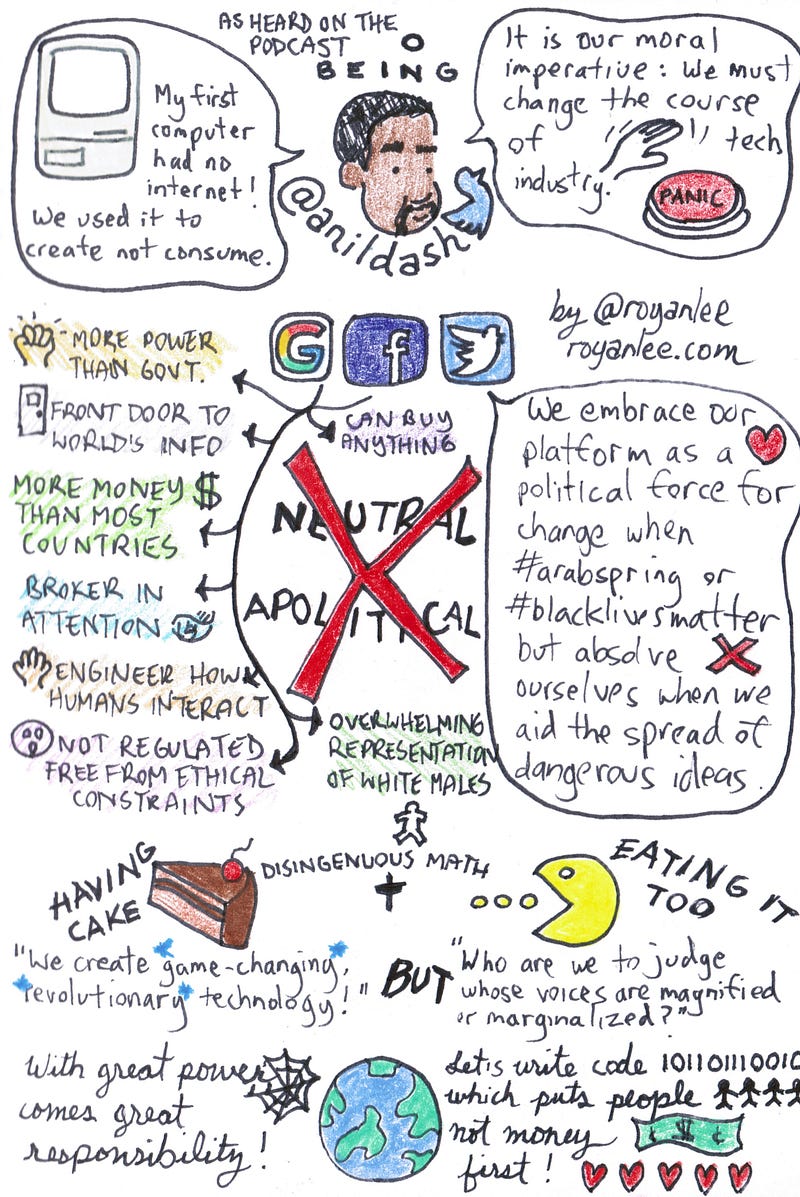 AS HEARD ON THE
PODCAST
O
BEING
My first
computer
had no
internet!
We used it to
create not consume.
@anildash
It is our moral
imperative: We must
change the course
of tech
industry.
PANIC
by @royanlee
royanlee.com
G f
MORE POWER
THAN GOVT.
FRONT DOOR TO
WORLD'S INFO
MORE MONEY $
THAN MOST
COUNTRIES
BROKER IN
ATTENTION
ENGINEER HOW
HUMANS INTERACT
NOT REGULATED
FREE FROM ETHICAL
CONSTRAINTS
CAN BUY
ANYTHING
NEUTRAL
APOLITICAL
OVERWHELMING
REPRESENTATION
OF WHITE MALES
We embrace our
platform as a
political force for
change when
#arabspring or
#blacklivesmatter
but absolve
ourselves when we
aid the spread of
dangerous ideas.
HAVING
CAKE
DISINGENUOUS MATH
+
EATING IT
TOO
"We create game-changing,
revolutionary technology!"
BUT
"Who are we to judge
whose voices are magnified
or marginalized?"
With great power
comes great
responsibility!
Let's write code 101101110010
which puts people
not money
first!